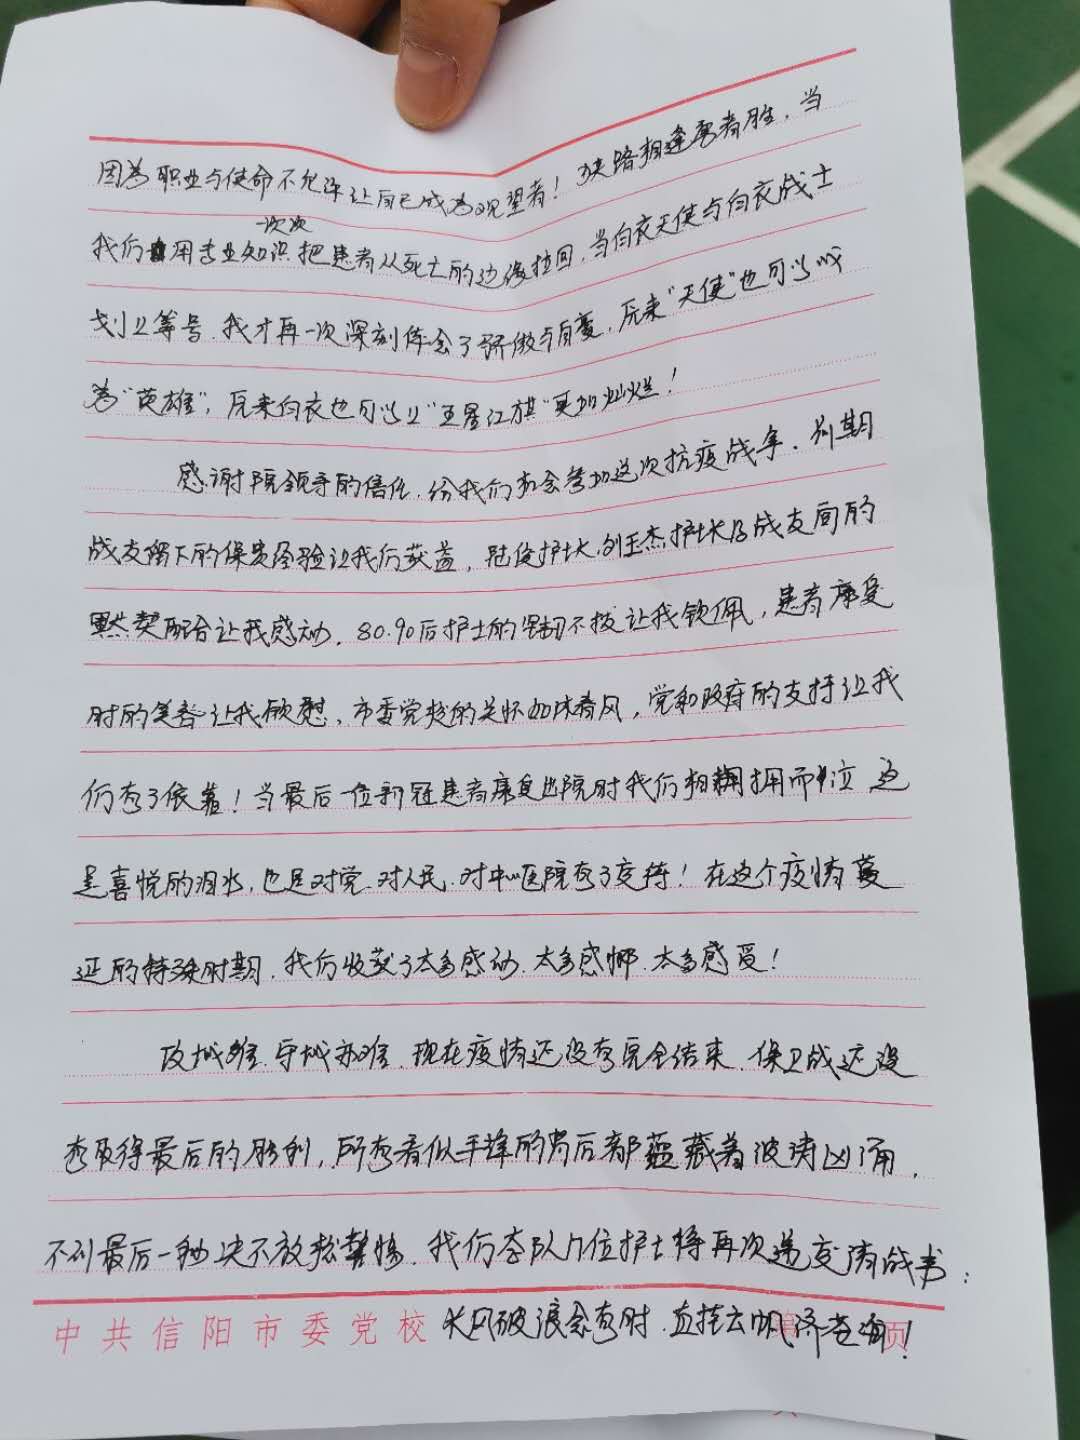 因为职业与使命不允许让自己成为观望者！狭路相逢勇者胜，当
一次次
我们用专业知识把患者从死亡的边缘拉回，当白衣天使与白衣战士
划上等号，我才再一次深刻体会了骄傲与自豪，原来“天使”也可以成
为“英雄”，原来白衣也可以让“五星红旗”更加灿烂！
感谢院领导的信任，给我们机会参加这次抗疫战争，前期
战友留下的保贵经验让我们获益，护士长，刘玉杰护士长及战友间的
默契配合让我感动，80.90后护士的坚韧不拔让我钦佩，患者康复
时的笑容让我欣慰，市委党校的关怀如沐春风，党和政府的支持让我
们有了依靠！当最后一位新冠患者康复出院时我们相拥而泣 这
是喜悦的泪水，也是对党.对人民.对中心医院有了交待！在这个疫情蔓
延的特殊时期，我们收获了太多感动.太多感慨.太多感受！
攻城难.守城亦难，现在疫情还没有完全结束，保卫战还没
有取得最后的胜利，所有看似平静的背后都蕴藏着波涛凶涌，
不到最后一秒决不放松警惕，我们全队几位护士将再次递交请战书：
长风破浪会有时.直挂云帆济苍海！
中共信阳市委党校 稿 页